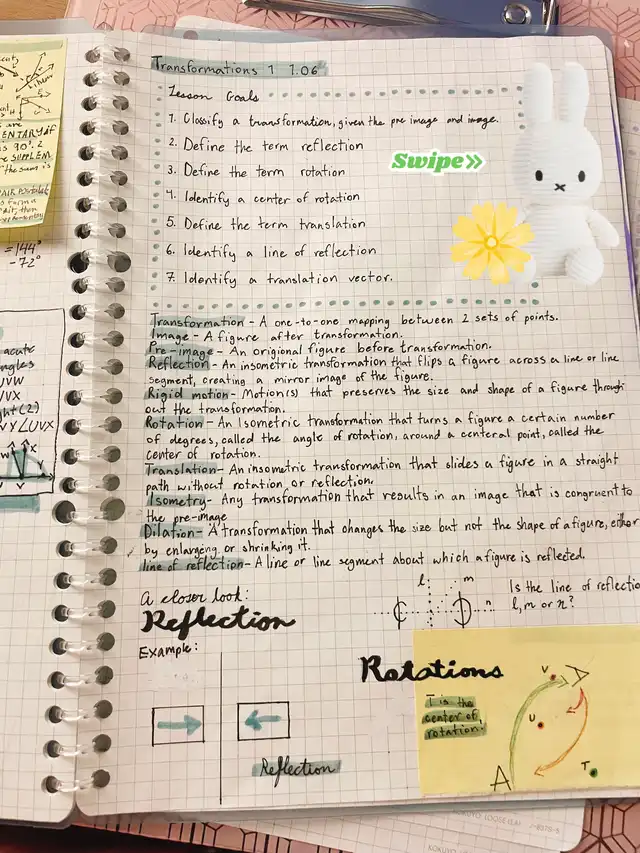 Transformations 1 1.06
Lesson Goals
1. Classify a transformation, given the pre image and image.
2. Define the term reflection
3. Define the term rotation
4. Identify a center of rotation
5. Define the term translation
6. Identify a line of reflection
7. Identify a translation vector.
Swipe»
Transformation - A one-to-one mapping between 2 sets of points.
Image - A figure after transformation.
Pre-image - An origional figure before transformation.
Reflection - An insometric transformation that flips a figure across a line or line
segment, creating a mirror image of the figure.
Rigid motion - Motion(s) that preserves the size and shape of a figure through
out the transformation.
Rotation - An Isometric transformation that turns a figure a certain number
of degrees, called the angle of rotation, around a centeral point, called the
center of rotation.
Translation - An insometric transformation that slides a figure in a straight
path without rotation or reflection.
Isometry - Any transformation that results in an image that is congruent to
the pre-image
Dilation - A transformation that changes the size but not the shape of a figure, either
by enlargeing or shrinking it.
line of reflection - A line or line segment about which a figure is reflected.
A closer look:
Reflection
Example:
Reflection
l m n
Is the line of reflectio
l, m or n?
Rotations
T is the
center of
rotation.
V
U
T
A
A
ENTARY if
is 90°. 2
SUPPLEM
= 144°
-72°
acute
angles
UVW
UVX
ght (2)
VY ∠UVX
KOKUYO LOOSE LEAF